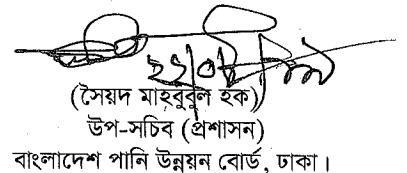 (সৈয়দ মাহবুবুল হক)
উপ-সচিব (প্রশাসন)
বাংলাদেশ পানি উন্নয়ন বোর্ড, ঢাকা।